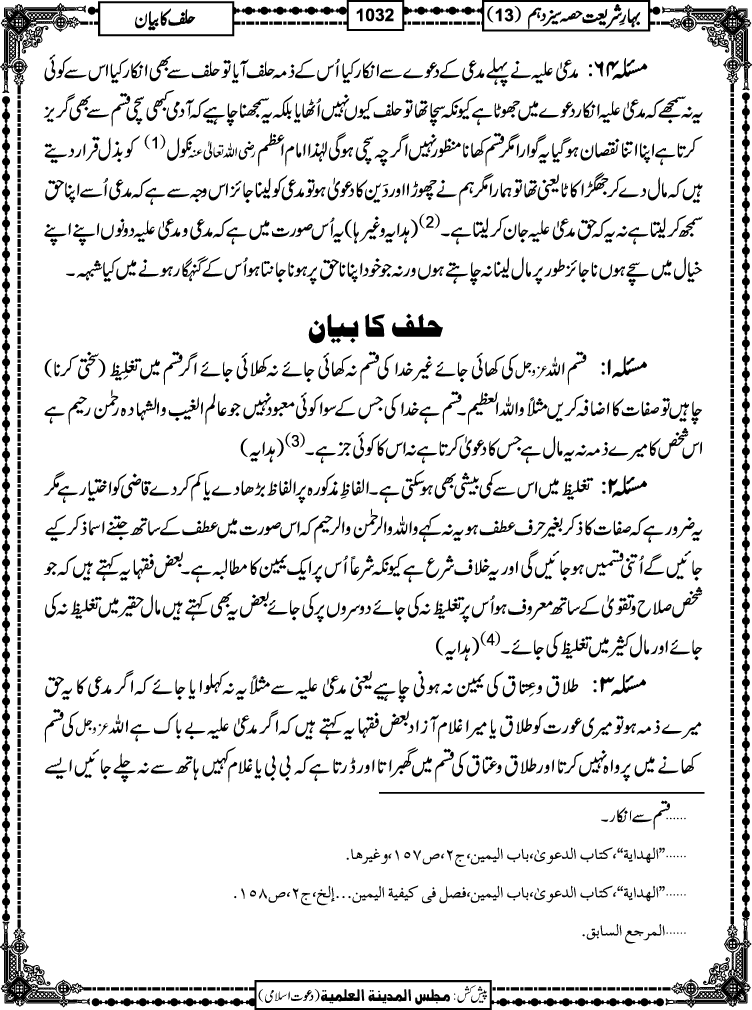 بہارِشریعت حصہ سیزدہم (13)
1032
حلف کا بیان
مسئلہ ۶۴: مدعیٰ علیہ نے پہلے مدعی کے دعوے سے انکار کیا اُس کے ذمہ حلف آیا تو حلف سے بھی انکار کیا اس سے کوئی
یہ نہ سمجھے کہ مدعیٰ علیہ انکار دعوے میں جھوٹا ہے کیونکہ سچا تھا تو حلف کیوں نہیں اُٹھایا بلکہ یہ سمجھنا چاہیے کہ آدمی کبھی سچی قسم سے بھی گریز
کرتا ہے اپنا اتنا نقصان ہو گیا یہ گوارا مگر قسم کھانا منظور نہیں اگرچہ سچی ہوگی لہٰذا امام اعظم رضی اللہ تعالیٰ عنہ نکول (1) کو بذل قرار دیتے
ہیں کہ مال دے کر جھگڑا کاٹا یعنی تھا تو ہمارا مگر ہم نے چھوڑا اور دَین کا دعویٰ ہو تو مدعی کو لینا جائز اس وجہ سے ہے کہ مدعی اُسے اپنا حق
سمجھ کر لیتا ہے نہ یہ کہ حق مدعیٰ علیہ جان کر لیتا ہے۔(2) (ہدایہ وغیرہا) یہ اُس صورت میں ہے کہ مدعی و مدعیٰ علیہ دونوں اپنے اپنے
خیال میں سچے ہوں ناجائز طور پر مال لینا نہ چاہتے ہوں ورنہ جو خود اپنا ناحق پر ہونا جانتا ہو اُس کے گنہگار ہونے میں کیا شبہہ۔
حلف کا بیان
مسئلہ ۱: قسم اللہ عزوجل کی کھائی جائے غیر خدا کی قسم نہ کھائی جائے نہ کھلائی جائے اگر قسم میں تغلیظ (سختی کرنا)
چاہیں تو صفات کا اضافہ کریں مثلاً واللہ العظیم۔ قسم ہے خدا کی جس کے سوا کوئی معبود نہیں جو عالم الغیب والشہادہ رحمٰن رحیم ہے
اس شخص کا میرے ذمہ نہ یہ مال ہے جس کا دعویٰ کرتا ہے نہ اس کا کوئی جز ہے۔(3) (ہدایہ)
مسئلہ ۲: تغلیظ میں اس سے کمی بیشی بھی ہوسکتی ہے۔ الفاظِ مذکورہ پر الفاظ بڑھا دے یا کم کر دے قاضی کو اختیار ہے مگر
یہ ضرور ہے کہ صفات کا ذکر بغیر حرف عطف ہو یہ نہ کہے واللہ والرحمٰن والرحیم کہ اس صورت میں عطف کے ساتھ جتنے اسما ذکر کیے
جائیں گے اُتنی قسمیں ہو جائیں گی اور یہ خلاف شرع ہے کیونکہ شرعاً اُس پر ایک یمین کا مطالبہ ہے۔ بعض فقہا یہ کہتے ہیں کہ جو
شخص صلاح و تقویٰ کے ساتھ معروف ہو اُس پر تغلیظ نہ کی جائے دوسروں پر کی جائے بعض یہ بھی کہتے ہیں مال حقیر میں تغلیظ نہ کی
جائے اور مال کثیر میں تغلیظ کی جائے۔(4) (ہدایہ)
مسئلہ ۳: طلاق و عتاق کی یمین نہ ہونی چاہیے یعنی مدعیٰ علیہ سے مثلاً یہ نہ کہلوایا جائے کہ اگر مدعی کا یہ حق
میرے ذمہ ہو تو میری عورت کو طلاق یا میرا غلام آزاد بعض فقہا یہ کہتے ہیں کہ اگر مدعیٰ علیہ بے باک ہے اللہ عزوجل کی قسم
کھانے میں پرواہ نہیں کرتا اور طلاق و عتاق کی قسم میں گھبراتا اور ڈرتا ہے کہ بی بی یا غلام کہیں ہاتھ سے نہ چلے جائیں ایسے
......قسم سے انکار۔
......"الھدایة"، کتاب الدعویٰ، باب الیمین، ج۲، ص۱۵۷، وغیرھا.
......"الھدایة"، کتاب الدعویٰ، باب الیمین، فصل فی کیفیة الیمین...إلخ، ج۲، ص۱۵۸.
......المرجع السابق.
پیش کش: مجلس المدینة العلمیة (دعوتِ اسلامی)